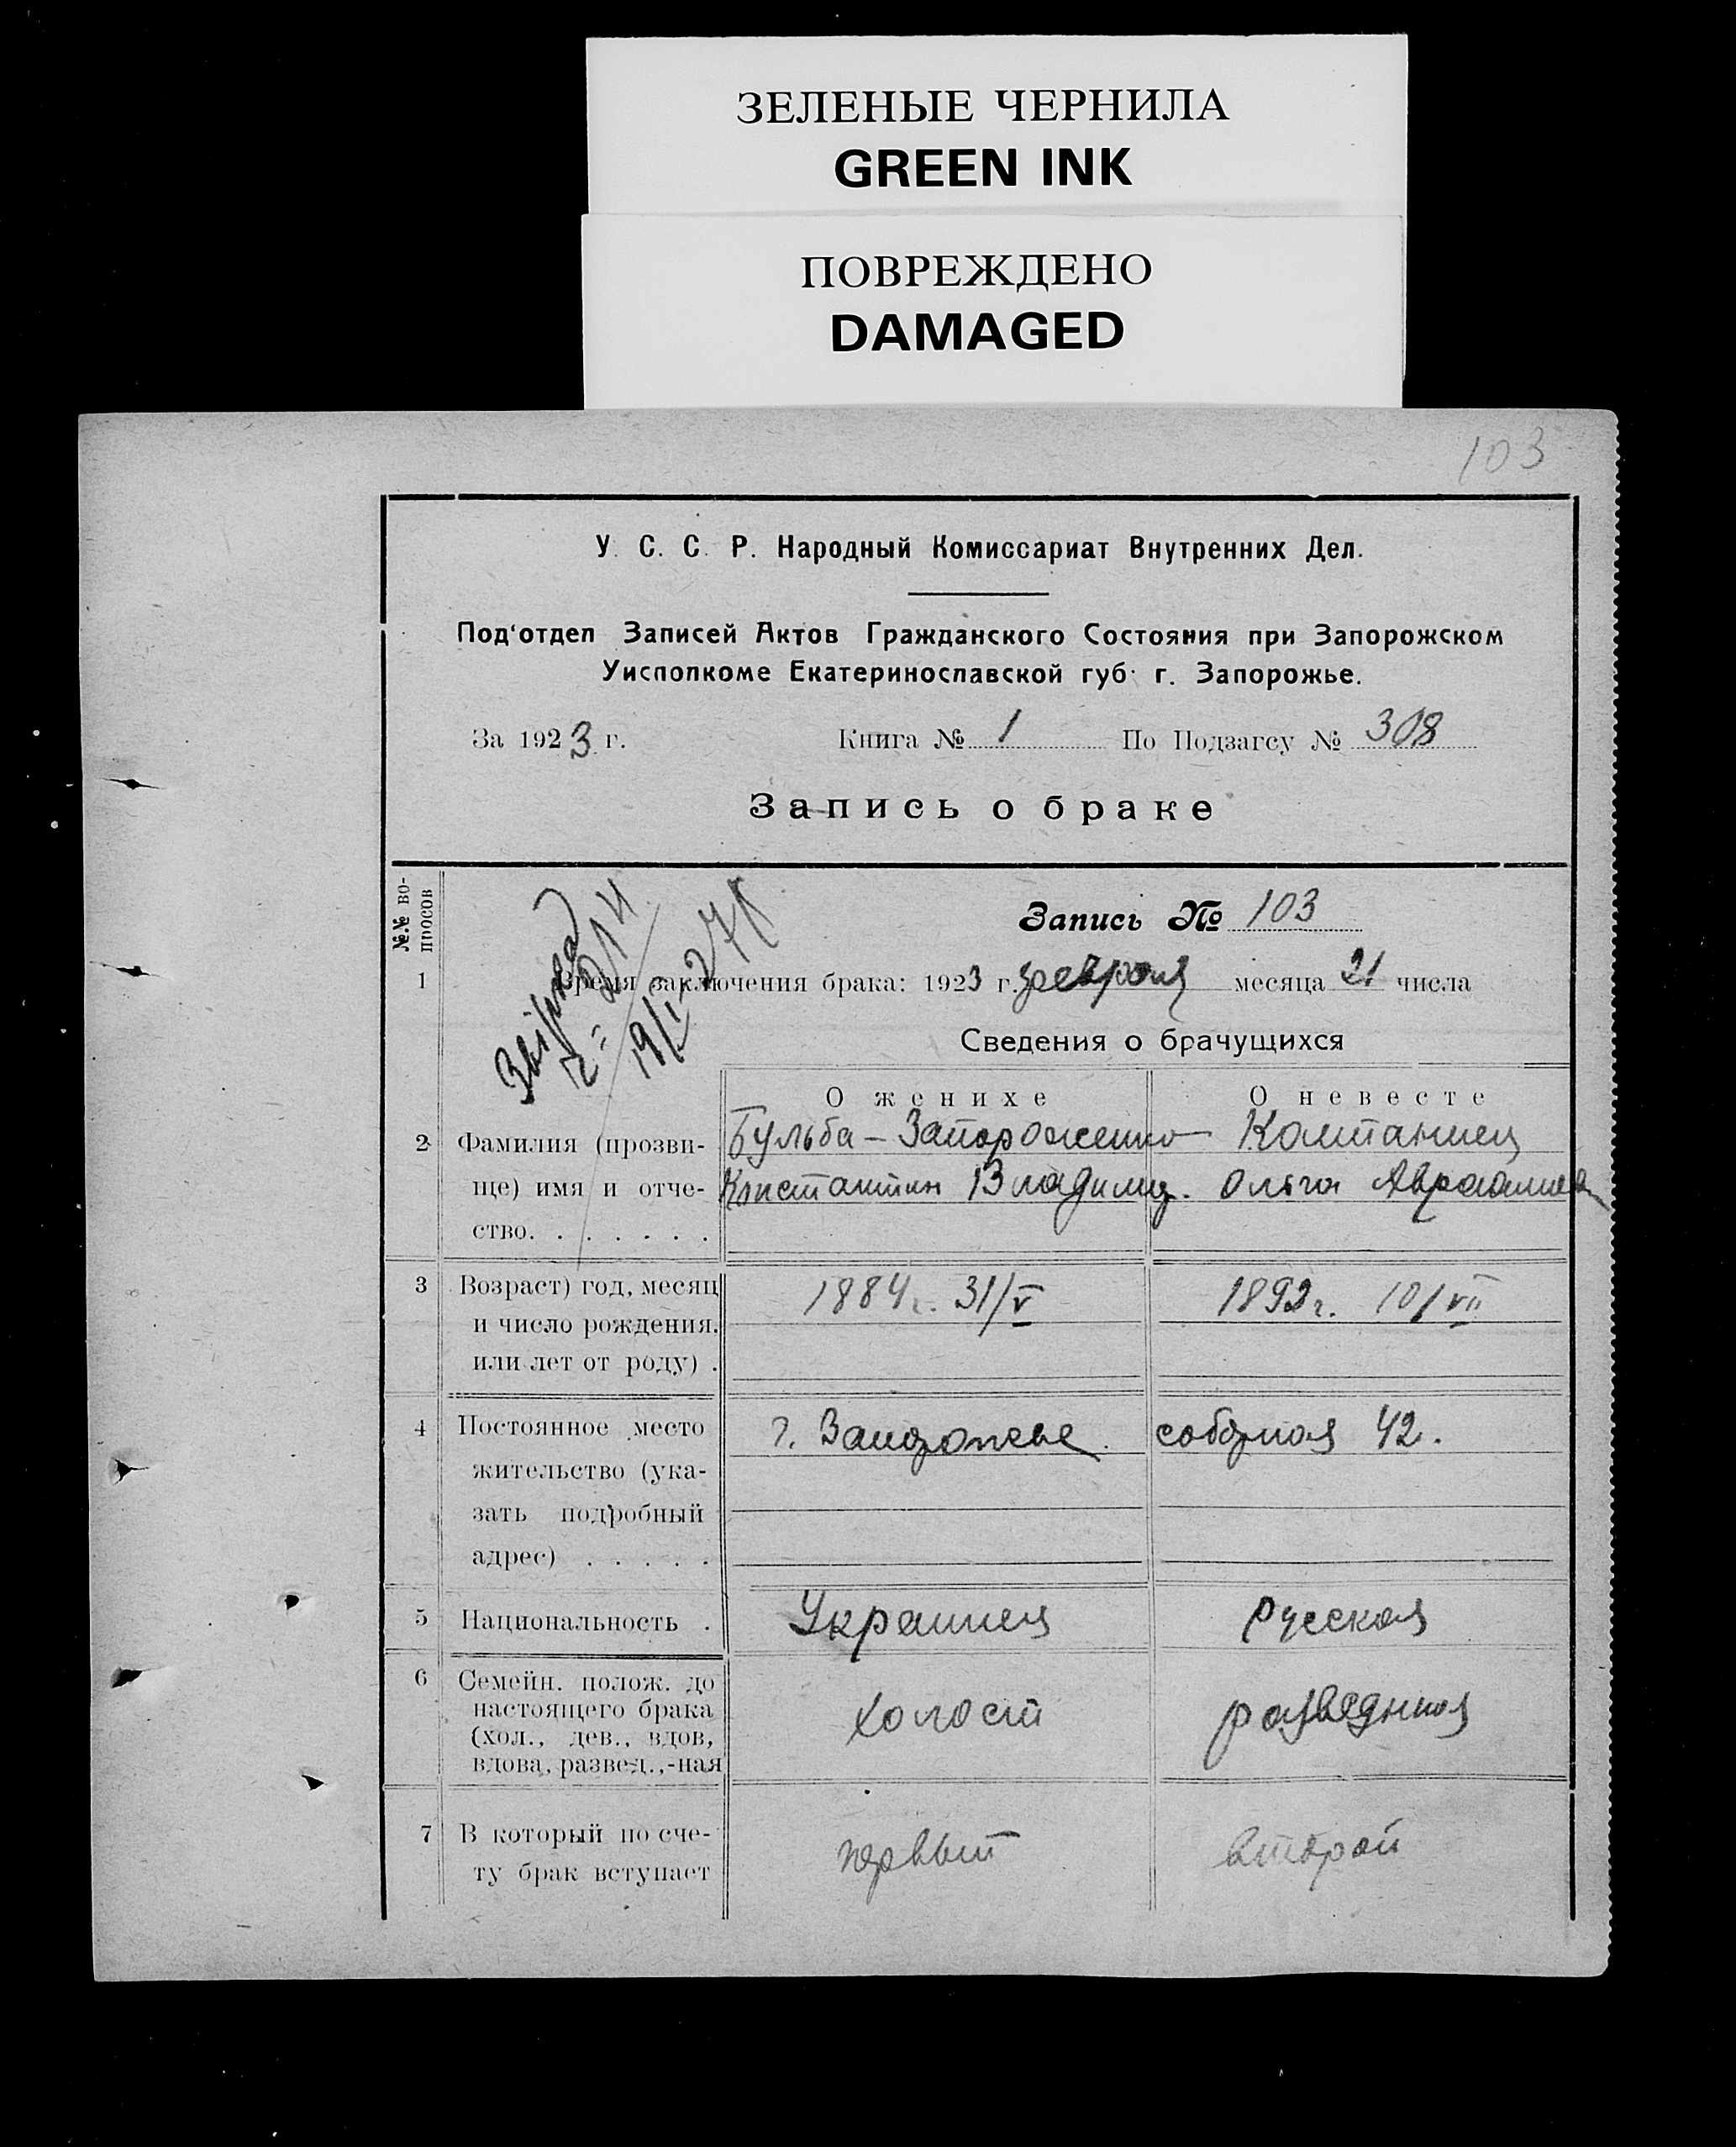 ЗЕЛЕНЫЕ ЧЕРНИЛА
GREEN INK
ПОВРЕЖДЕНО
DAMAGED
103
У. С. С. Р. Народный Комиссариат Внутренних Дел.
Под‘отдел Записей Актов Гражданского Состояния при Запорожском
Уисполкоме Екатеринославской губ. г. Запорожье.
За 1923 г. Книга № 1 По Подзагсу № 308
Запись о браке
№.№ во-
просов
Запись № 103
1 Время заключения брака: 1923 г. февраля месяца 21 числа
Сведения о брачущихся
О женихе О невесте
2 Фамилия (прозви- Бульба – Запороженко Компаниец
ще) имя и отче- Констатин Владимир. Ольга Авраамиев
ство. . . . . . .
3 Возраст) год, месяц 1884 г. 31/V 1892 г. 10/VII
и число рождения.
или лет от роду) .
4 Постоянное место г. Запорожье соборная 42.
жительство (ука-
зать подробный
адрес) . . . . .
5 Национальность . Украинец Русская
6 Семейн. полож. до
настоящего брака холост разведенная
(хол., дев., вдов,
вдова, развед.,-ная
7 В который по сче- первый второй
ту брак вступает